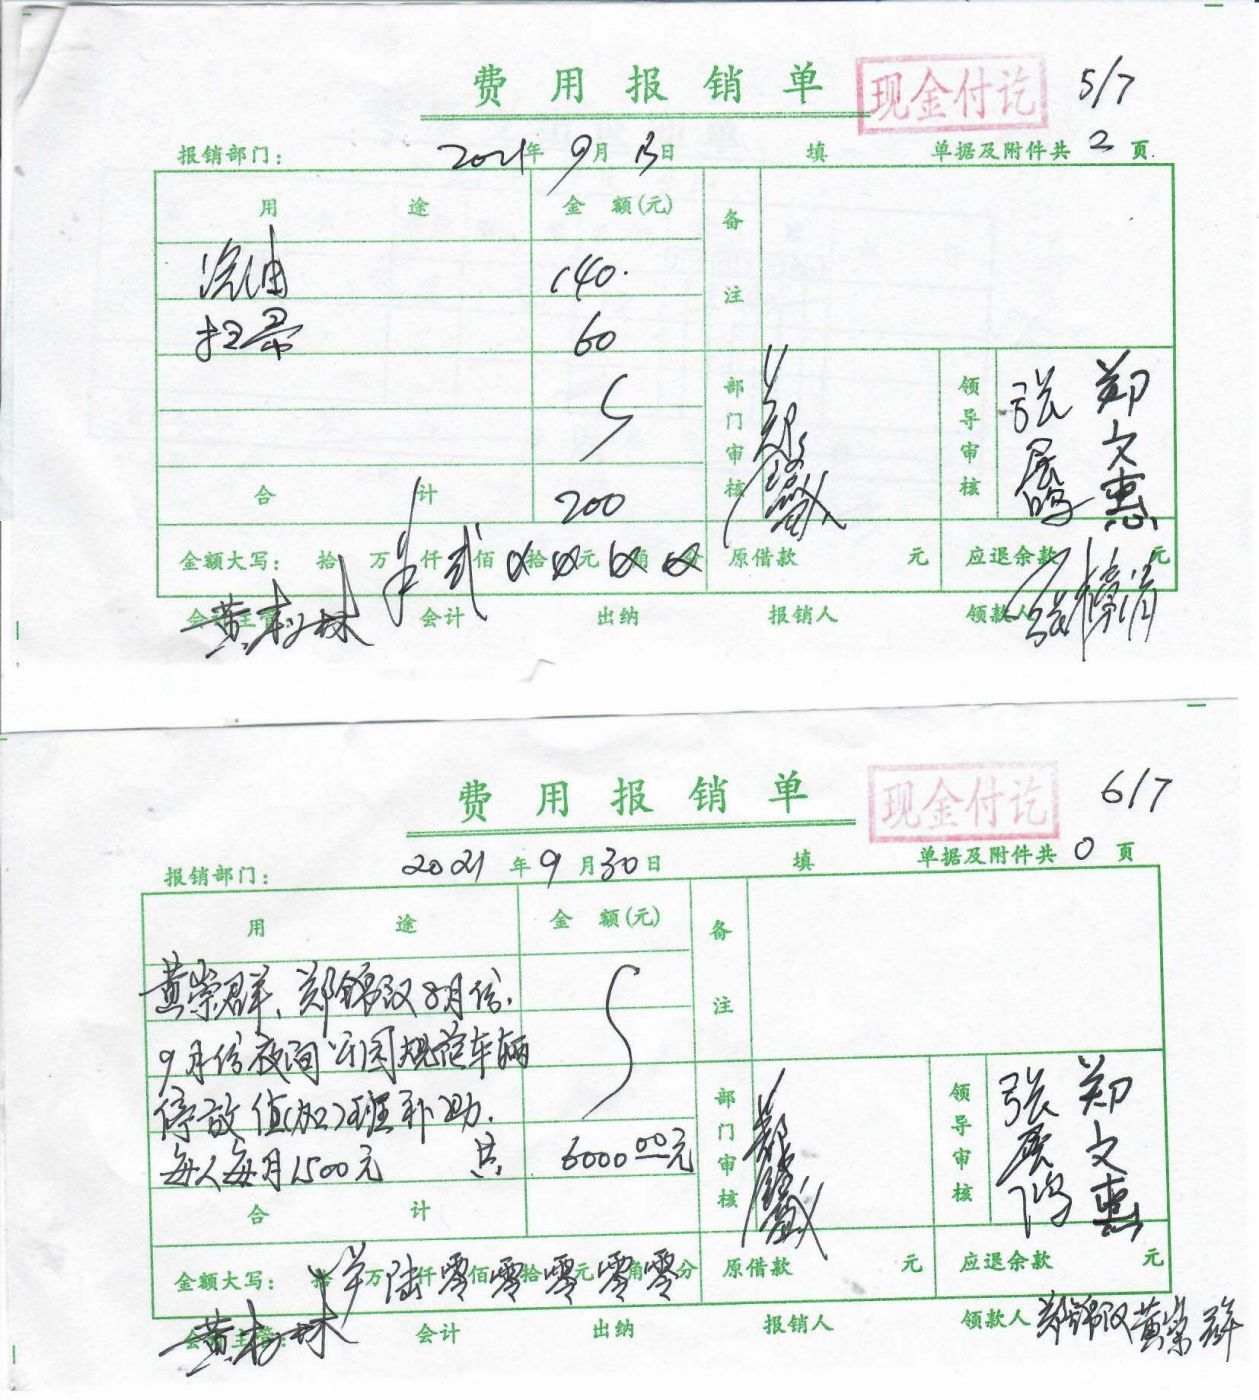 费用报销单 现金付讫 5/7
报销部门: 2021年9月13日 填 单据及附件共2页
用途 金额(元) 备注
汽油 140.
扫帚 60
部门审核 领导审核 张 郑文惠
合计 200
金额大写: 拾万仟贰佰拾元角分 原借款 元 应退余款 元
会计主管 会计 出纳 报销人 领款人
费用报销单 现金付讫 6/7
报销部门: 2021年9月30日 填 单据及附件共0页
用途 金额(元) 备注
黄崇群、郑锦汉8月份.
9月份夜间公园规范车辆
停放值(加)班补助.
每人每月1500元 共 6000.00元
部门审核 领导审核 张 郑文惠
合计
金额大写: 拾万陆仟零佰零拾零元零角零分 原借款 元 应退余款 元
会计主管: 会计 出纳 报销人 领款人 郑锦汉 黄崇群